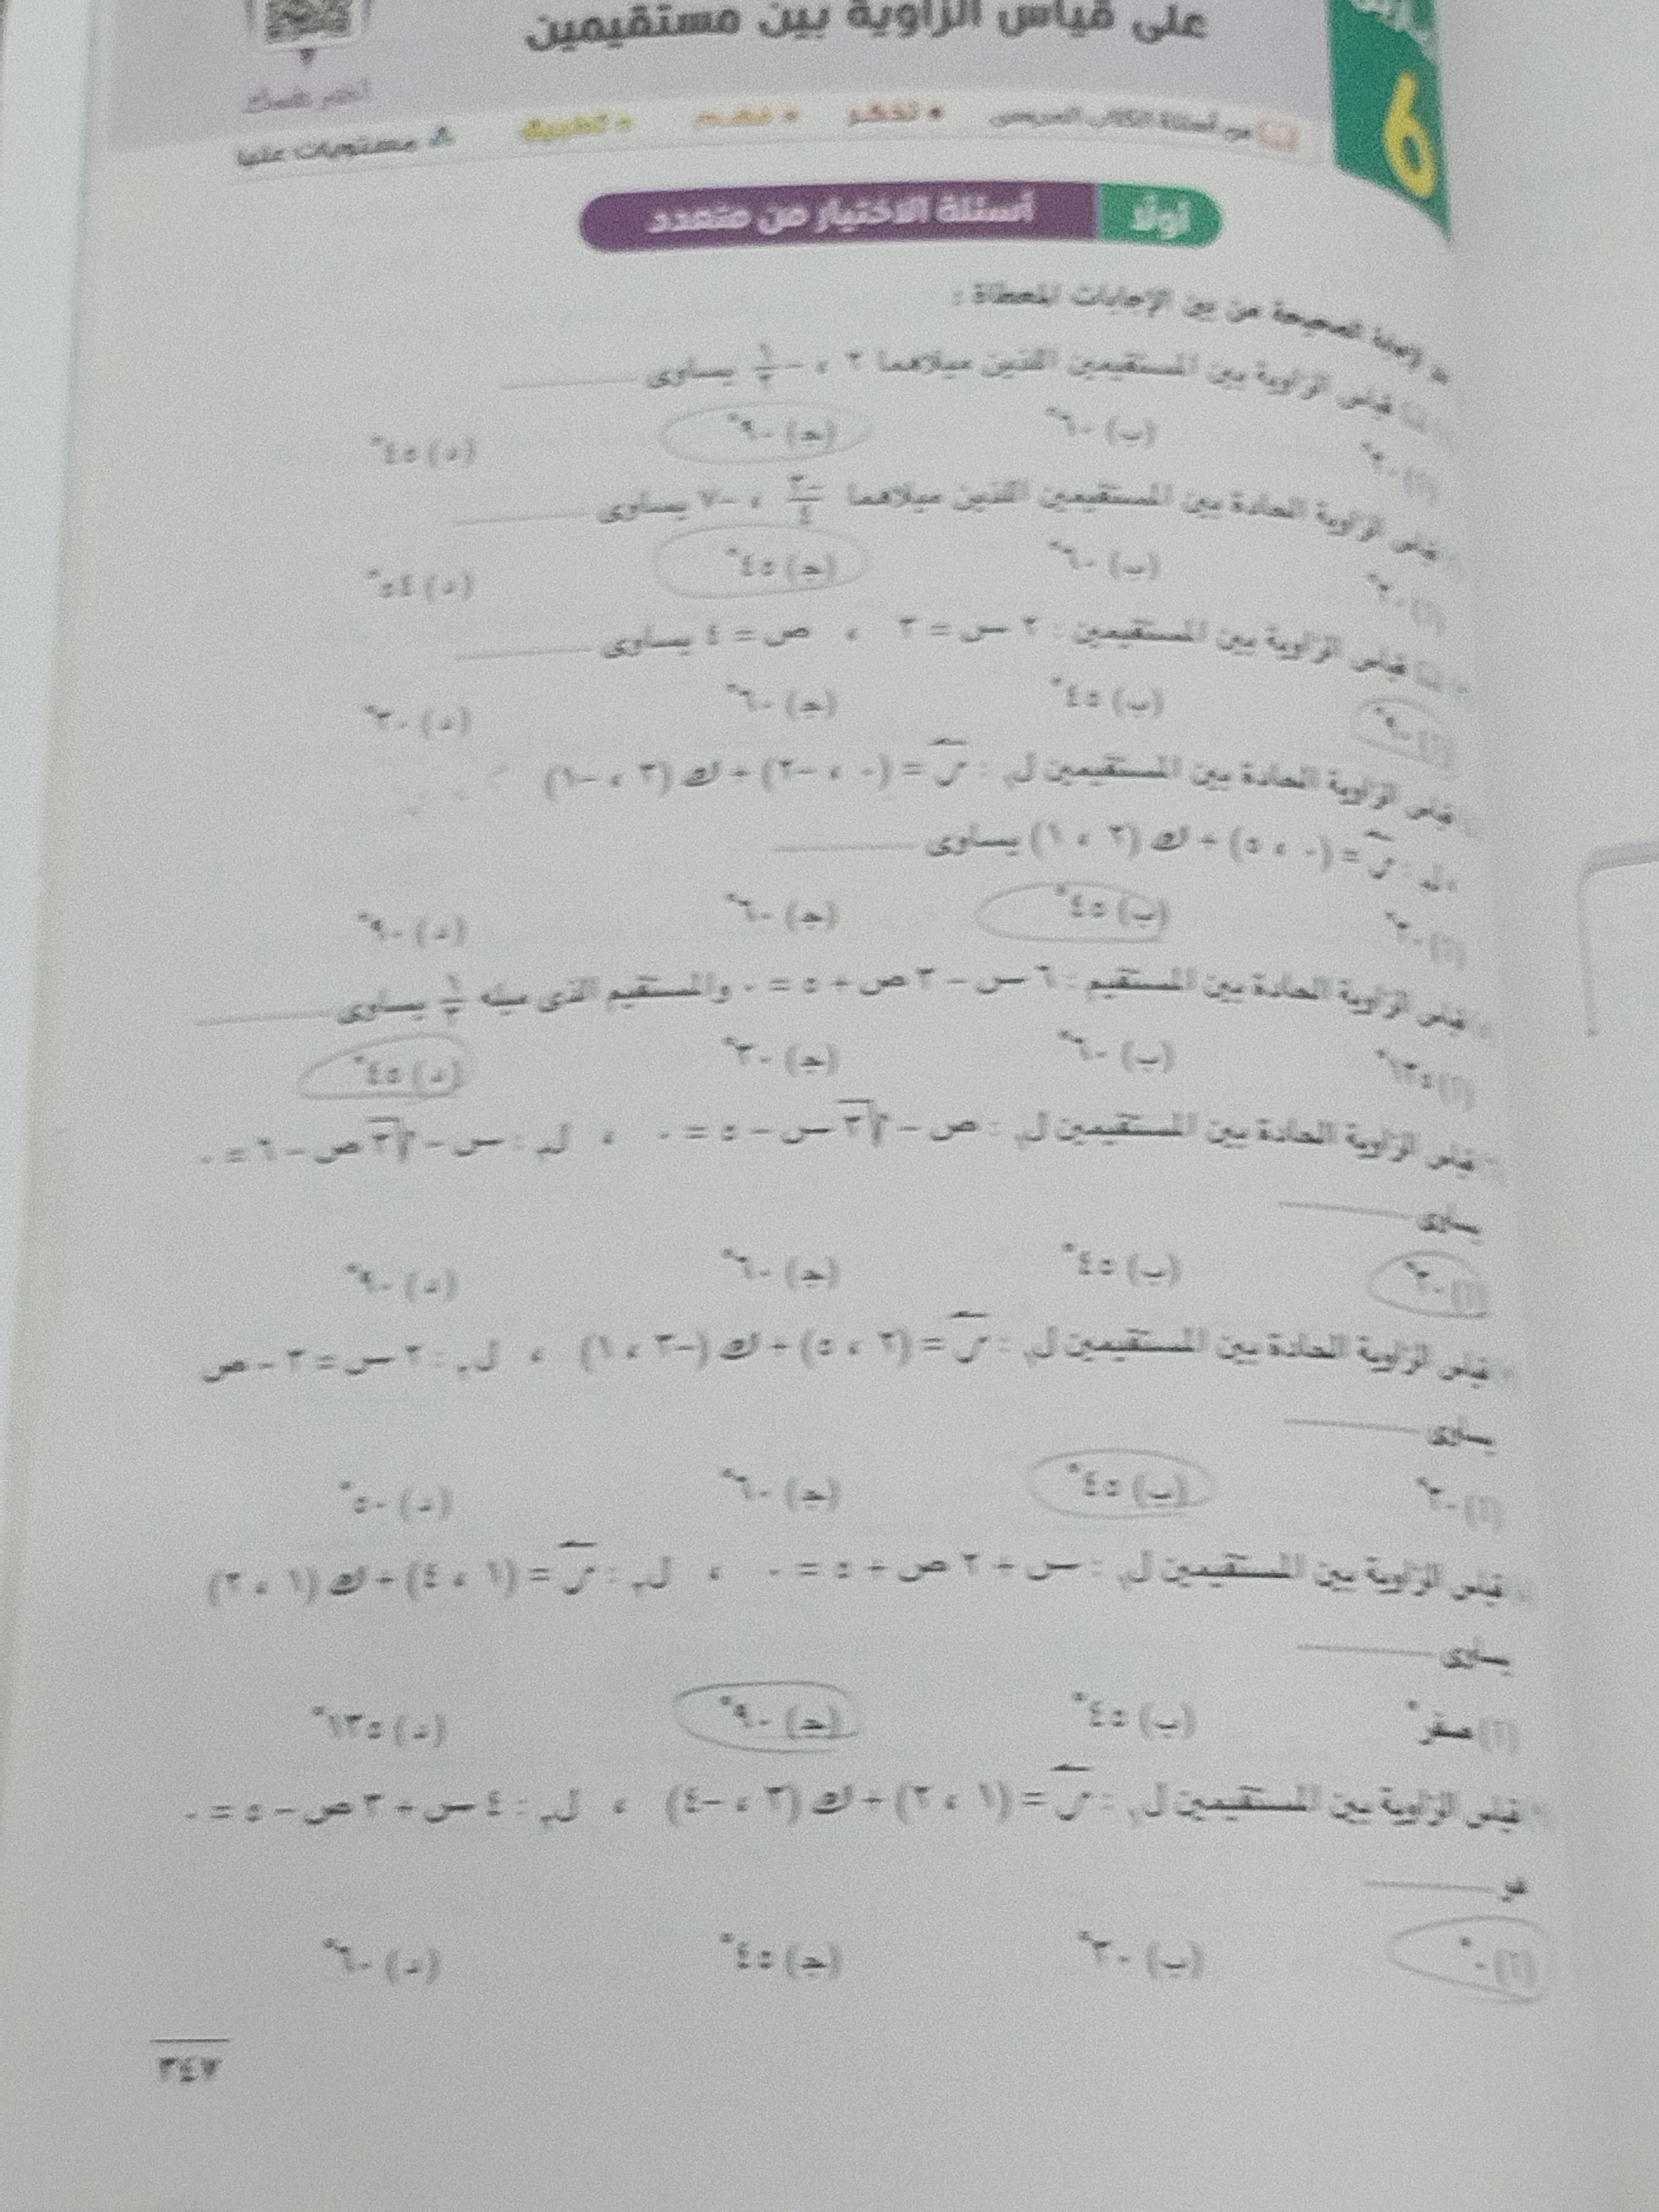 على قياس الزاوية بين مستقيمين
اختبر نفسك
6
من أسئلة الكتاب المدرسى • تذكر • فهم • تطبيق مستويات عليا
أولًا أسئلة الاختيار من متعدد
الإجابة الصحيحة من بين الإجابات المعطاة :
قياس الزاوية بين المستقيمين اللذين ميلاهما ٢ ، -١/٢ يساوى
(أ) ٣٠° (ب) ٦٠° (جـ) ٩٠° (د) ٤٥°
قياس الزاوية الحادة بين المستقيمين اللذين ميلاهما -٣/٤ ، -٧ يساوى
(أ) ٣٠° (ب) ٦٠° (جـ) ٤٥° (د) ٥٤°
قياس الزاوية بين المستقيمين : ٢ س = ٣ ، ص = ٤ يساوى
(أ) ٩٠° (ب) ٤٥° (جـ) ٦٠° (د) ٣٠°
قياس الزاوية الحادة بين المستقيمين ل١ : ر = (٠ ، -٢) + ك (٣ ، -١)
، ل٢ : ر = (٠ ، ٥) + ك (٢ ، ١) يساوى
(أ) ٣٠° (ب) ٤٥° (جـ) ٦٠° (د) ٩٠°
قياس الزاوية الحادة بين المستقيم : ٦ س - ٣ ص + ٥ = ٠ والمستقيم الذى ميله ١/٣ يساوى
(أ) ١٣٥° (ب) ٦٠° (جـ) ٣٠° (د) ٤٥°
قياس الزاوية الحادة بين المستقيمين ل١ : ص - √٣ س - ٥ = ٠ ، ل٢ : س - √٣ ص - ٦ = ٠
يساوى
(أ) ٣٠° (ب) ٤٥° (جـ) ٦٠° (د) ٩٠°
قياس الزاوية الحادة بين المستقيمين ل١ : ر = (٢ ، ٥) + ك (-٣ ، ١) ، ل٢ : ٢ س = ٣ - ص
يساوى
(أ) ٣٠° (ب) ٤٥° (جـ) ٦٠° (د) ٥٠°
قياس الزاوية بين المستقيمين ل١ : س + ٢ ص + ٥ = ٠ ، ل٢ : ر = (١ ، ٤) + ك (١ ، ٢)
يساوى
(أ) صفر° (ب) ٤٥° (جـ) ٩٠° (د) ١٣٥°
قياس الزاوية بين المستقيمين ل١ : ر = (١ ، ٢) + ك (٣ ، -٤) ، ل٢ : ٤ س + ٣ ص - ٥ = ٠
هو
(أ) ٠° (ب) ٣٠° (جـ) ٤٥° (د) ٦٠°
٣٤٧